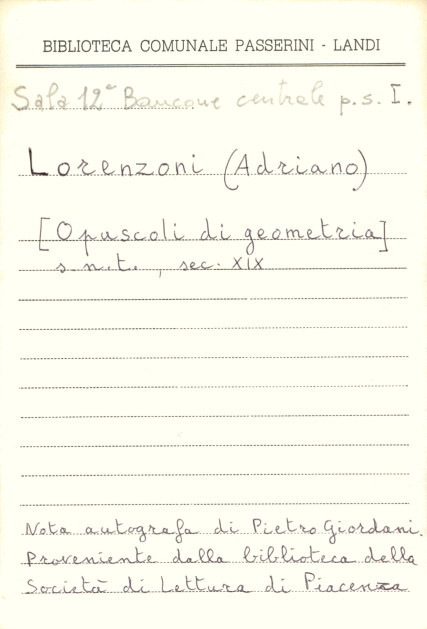 BIBLIOTECA COMUNALE PASSERINI - LANDI
Sala 12ª Bancone centrale p.s. I.
Lorenzoni (Adriano)
[Opuscoli di geometria]
s.n.t., sec. XIX
Nota autografa di Pietro Giordani.
Proveniente dalla biblioteca della
Società di Lettura di Piacenza